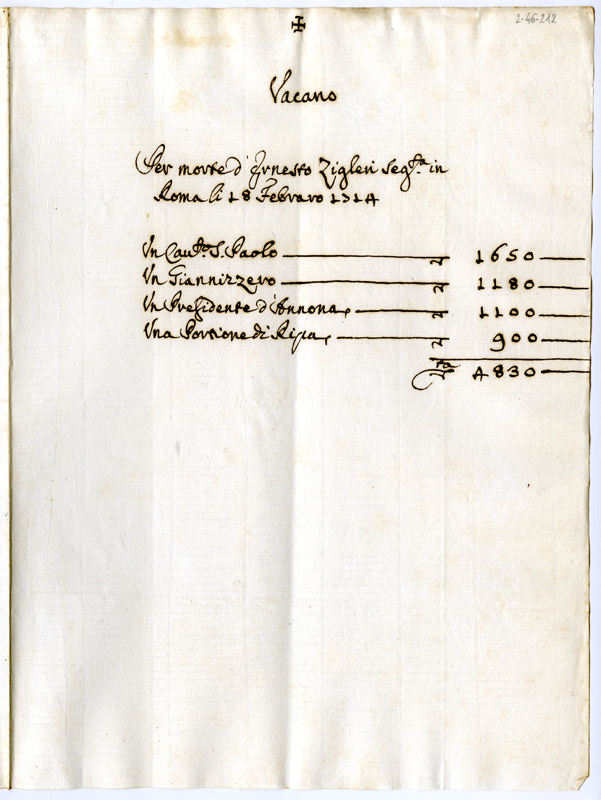 ✠
2-46-212
Vacano
Per morte d'Ernesto Zigleri seg.ta in
Roma li 18 Febraro 1714
Un Cau.to S. Paolo 1650
Un Giannizzero 1180
Un Presidente d'Annona 1100
Una Portione di Ripa 900
4830